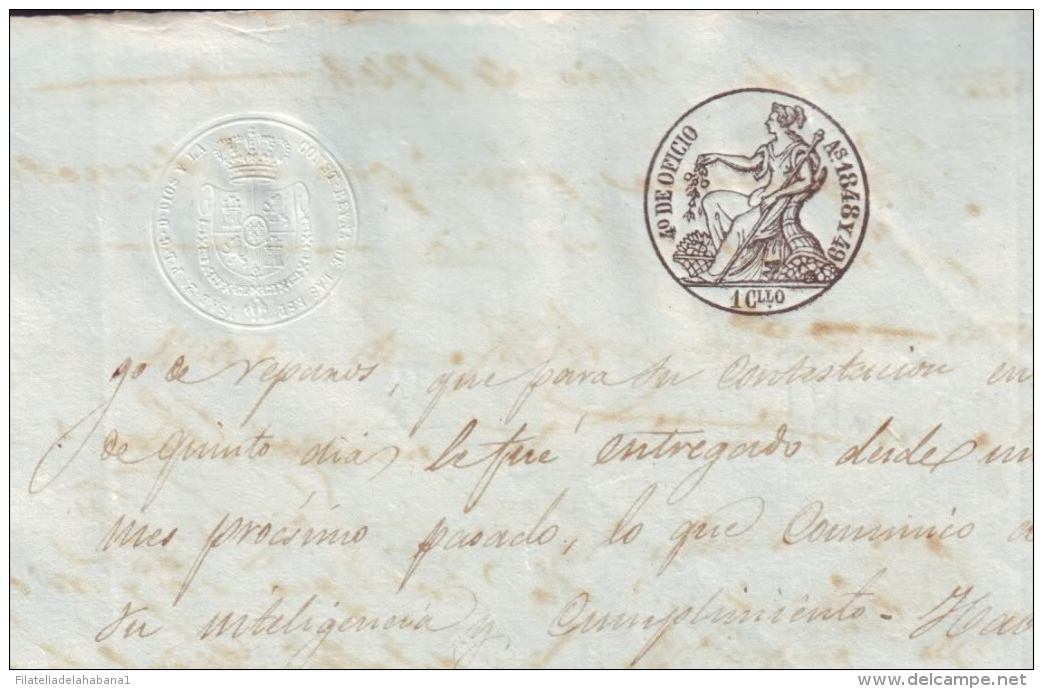 ISAB. 2ª P. L. G. D DIOS Y LA CONST. REYNA DE LAS ESP.
4º DE OFICIO
AS. 1848 Y 49
1 CLLO
go de reparos, que para su contestacion en
de quinto dia, le fué entregado desde
mes procsimo pasado, lo que comunico a
su inteligencia y cumplimiento - Hav
Filateliadelahabana1
www.delcampe.net